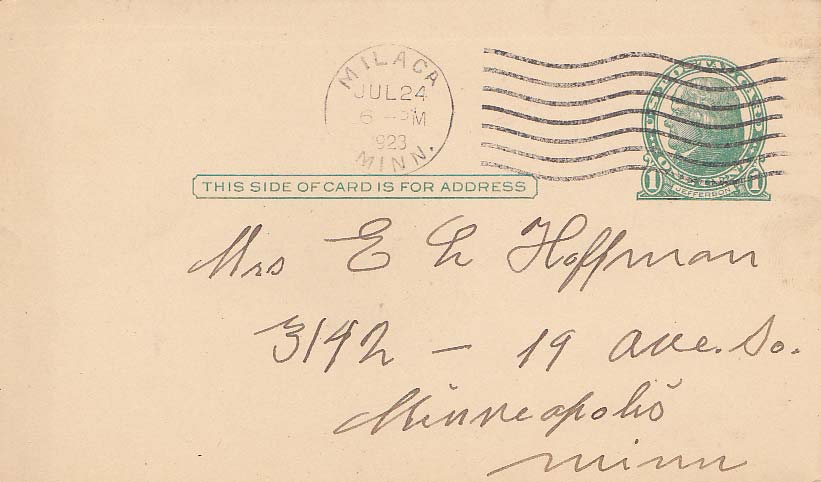 MILACA
JUL 24
6 - PM
1923
MINN.
THIS SIDE OF CARD IS FOR ADDRESS
1 JEFFERSON 1
Mrs E L Hoffman
3142 - 19 Ave. So.
Minneapolis
Minn